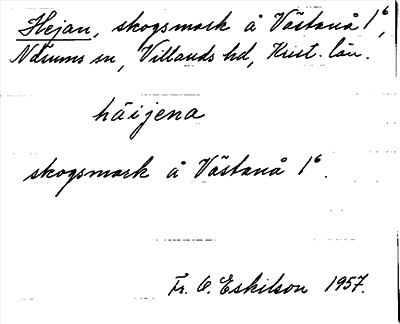 Hejan, skogsmark å Västanå 1⁶,
Näsums sn, Villands hd, Krist. län.
häijena
skogsmark å Västanå 1⁶.
Fr. O. Eskilson 1957.